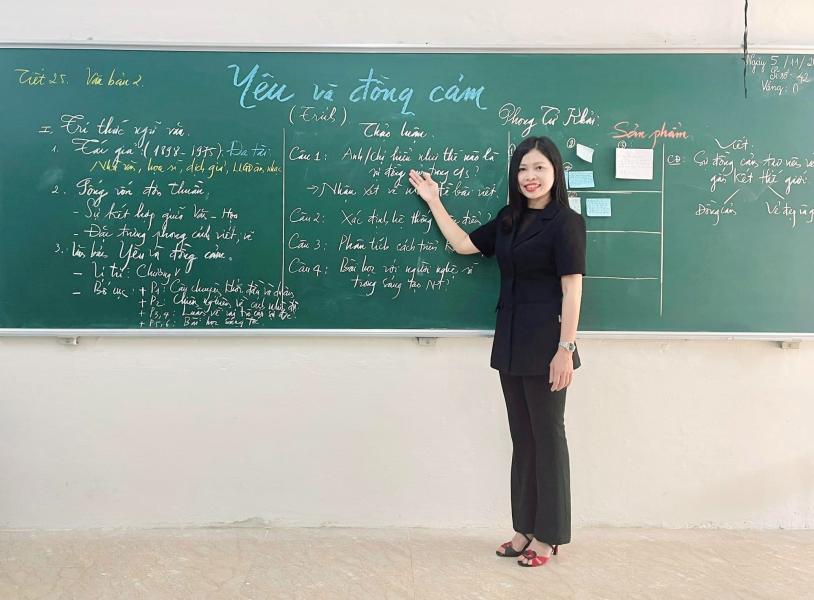 Tiết 25. Văn bản 2.
Yêu và đồng cảm
(Trích)
Phong Tử Khải
Ngày 5/11/20
Sĩ số: 42
Vắng: 0
I. Tri thức ngữ văn.
1. Tác giả (1898-1975): Đa tài:
Nhà văn, họa sĩ, dịch giả, LLGD âm nhạc
2. Tổng văn đơn thuần
- Sự kết hợp giữa Văn - Họa
- Đặc trưng phong cách viết, vẽ
3. Văn bản Yêu và đồng cảm.
- Vị trí: Chương V
- Bố cục: + P1: Câu chuyện khởi dẫn và
+ P2:
+ P3,4:
+ P5,6: Bài học sáng tác
Thảo luận.
Câu 1: Anh/chị hiểu như thế nào là
sự đồng cảm trong c/s?
→ Nhận xét về nhan đề bài viết.
Câu 2: Xác định hệ thống
Câu 3: Phân tích cách triển
Câu 4: Bài học với người nghệ sĩ
trong sáng tạo NT?
Sản phẩm
Viết:
CĐ: Sự đồng cảm tạo nên
gắn kết thế giới
Đồng cảm
Vẻ đẹp